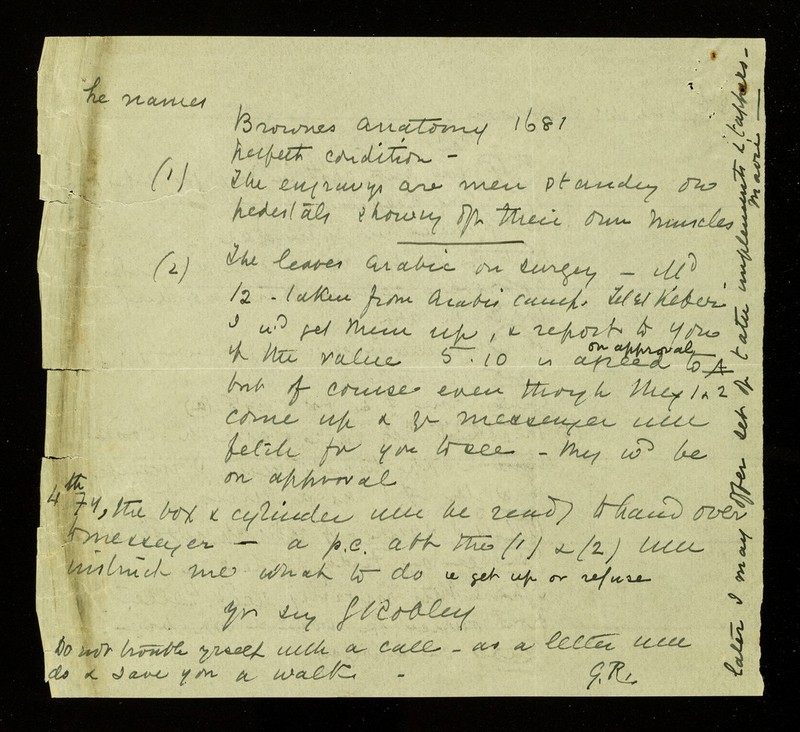 he names
Brownes Anatomy 1681
Perfect condition -
(1) The engravgs are men standing on
pedestals showing off their own muscles
(2) The leaves Arabic on surgery - Md
12 - taken from Arabis camp. Tel el Kebir
I wd get them up, & report to you
if the value 5.10 is agreed to
on approval
but of course even though they 1 & 2
come up & yr messenger will
fetch for you to see - they wd be
on approval
4th Fy, the box & cylinder will be ready to hand over
to messenger - a p.c. abt the (1) & (2) will
instruct me what to do ie get up or refuse
yr sy G Robley
Do not trouble yrself with a call - as a letter will
do & save you a walk -
G.R.
later I may offer set of tatu implements &
Maori -